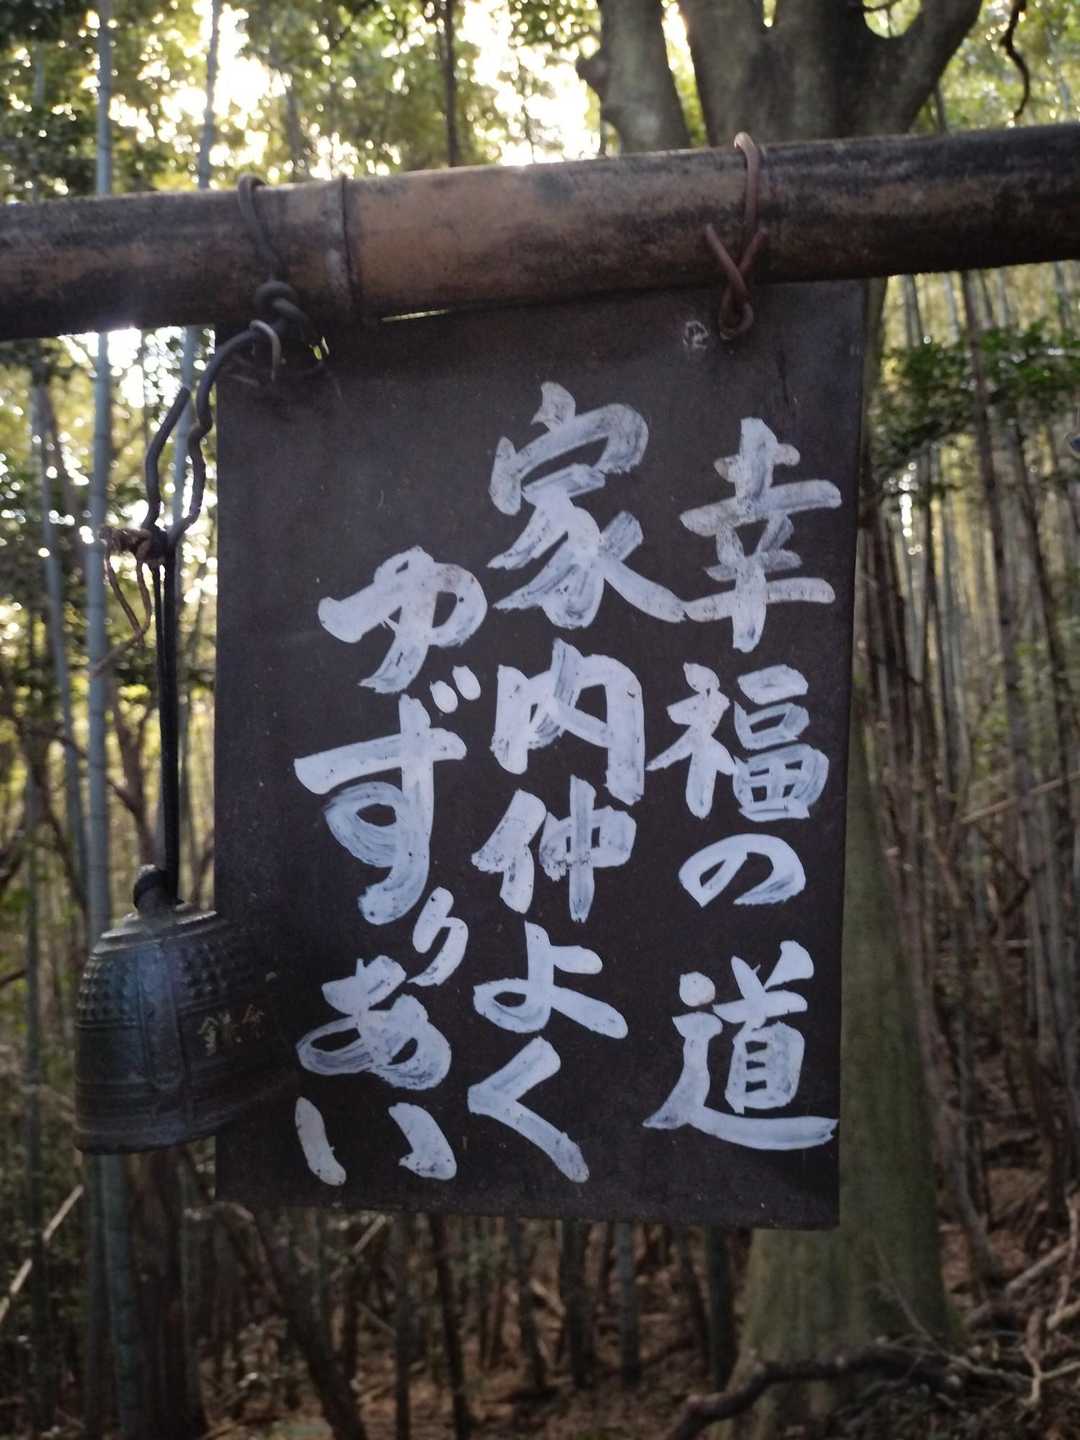 幸福の道
家内仲よく
ゆずりあい